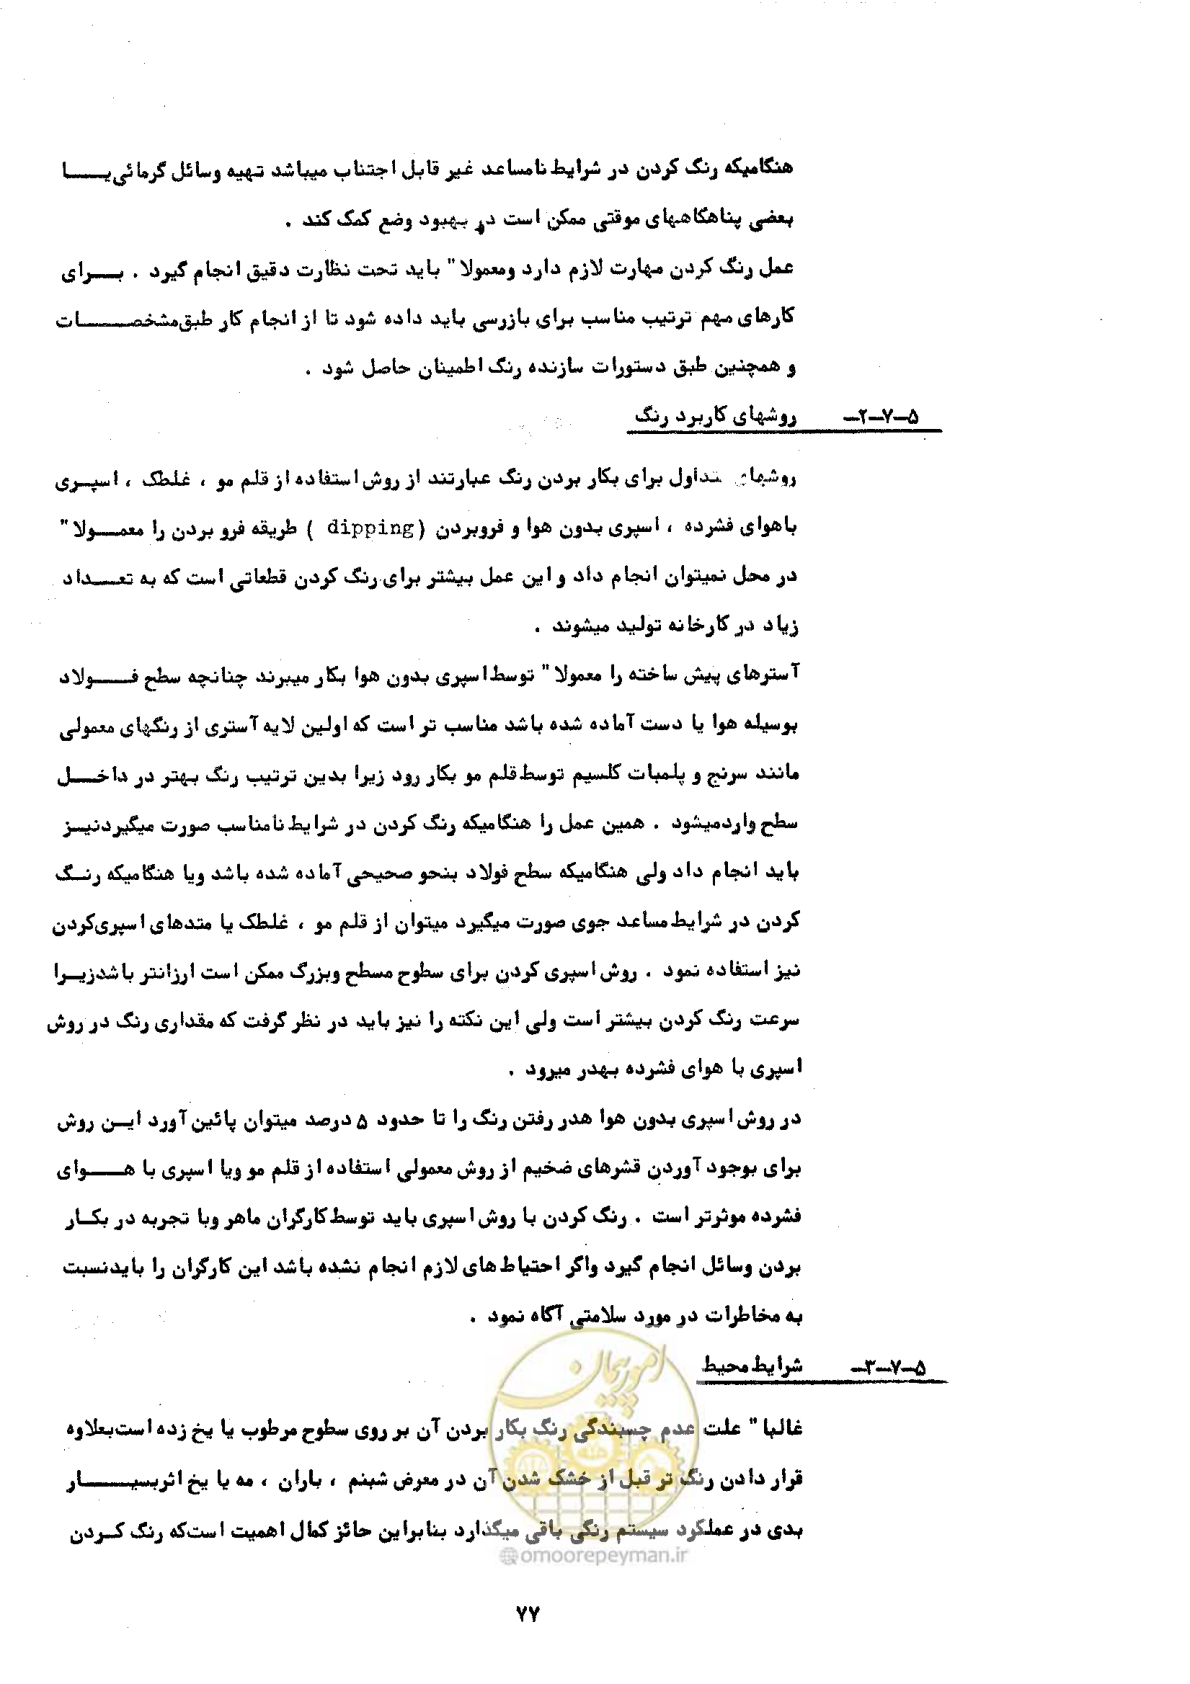 هنگامیکه رنگ کردن در شرایط نامساعد غیر قابل اجتناب میباشد تهیه وسائل گرمائی یا
بعضی پناهگاههای موقتی ممکن است در بهبود وضع کمک کند .
عمل رنگ کردن مهارت لازم دارد ومعمولا" باید تحت نظارت دقیق انجام گیرد . برای
کارهای مهم ترتیب مناسب برای بازرسی باید داده شود تا از انجام کار طبق مشخصات
و همچنین طبق دستورات سازنده رنگ اطمینان حاصل شود .
۵-۷-۲- روشهای کاربرد رنگ
روشهای متداول برای بکار بردن رنگ عبارتند از روش استفاده از قلم مو ، غلطک ، اسپری
باهوای فشرده ، اسپری بدون هوا و فروبردن ( dipping ) طریقه فرو بردن را معمولا"
در محل نمیتوان انجام داد و این عمل بیشتر برای رنگ کردن قطعاتی است که به تعداد
زیاد در کارخانه تولید میشوند .
آسترهای پیش ساخته را معمولا" توسط اسپری بدون هوا بکار میبرند چنانچه سطح فولاد
بوسیله هوا یا دست آماده شده باشد مناسب تر است که اولین لایه آستری از رنگهای معمولی
مانند سرنج و پلمبات کلسیم توسط قلم مو بکار رود زیرا بدین ترتیب رنگ بهتر در داخل
سطح واردمیشود . همین عمل را هنگامیکه رنگ کردن در شرایط نامناسب صورت میگیردنیز
باید انجام داد ولی هنگامیکه سطح فولاد بنحو صحیحی آماده شده باشد ویا هنگامیکه رنگ
کردن در شرایط مساعد جوی صورت میگیرد میتوان از قلم مو ، غلطک یا متدهای اسپری‌کردن
نیز استفاده نمود . روش اسپری کردن برای سطوح مسطح وبزرگ ممکن است ارزانتر باشدزیرا
سرعت رنگ کردن بیشتر است ولی این نکته را نیز باید در نظر گرفت که مقداری رنگ در روش
اسپری با هوای فشرده بهدر میرود .
در روش اسپری بدون هوا هدر رفتن رنگ را تا حدود ۵ درصد میتوان پائین آورد این روش
برای بوجود آوردن قشرهای ضخیم از روش معمولی استفاده از قلم مو ویا اسپری با هوای
فشرده موثرتر است . رنگ کردن با روش اسپری باید توسط کارگران ماهر وبا تجربه در بکار
بردن وسائل انجام گیرد واگر احتیاط های لازم انجام نشده باشد این کارگران را بایدنسبت
به مخاطرات در مورد سلامتی آگاه نمود .
۵-۷-۳- شرایط محیط
غالبا" علت عدم چسبندگی رنگ بکار بردن آن بر روی سطوح مرطوب یا یخ زده است‌بعلاوه
قرار دادن رنگ تر قبل از خشک شدن آن در معرض شبنم ، باران ، مه یا یخ اثربسیار
بدی در عملکرد سیستم رنگی باقی میگذارد بنابراین حائز کمال اهمیت است‌که رنگ کردن
امور پیمان
@omoorepeyman.ir
۷۷